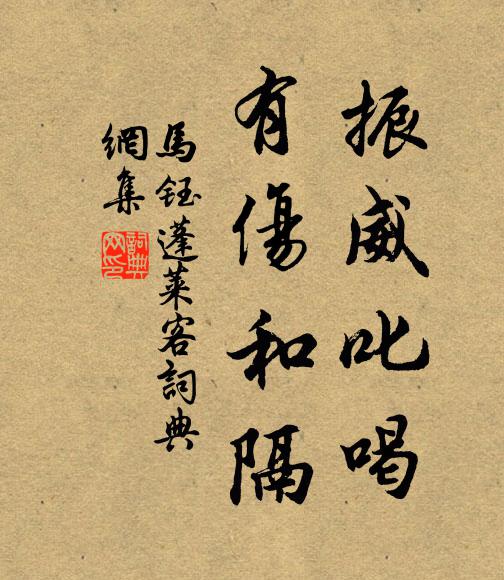 振威叱喝
有傷和隔
馬鈺蓬莱客詞典
網集
詞典
网印